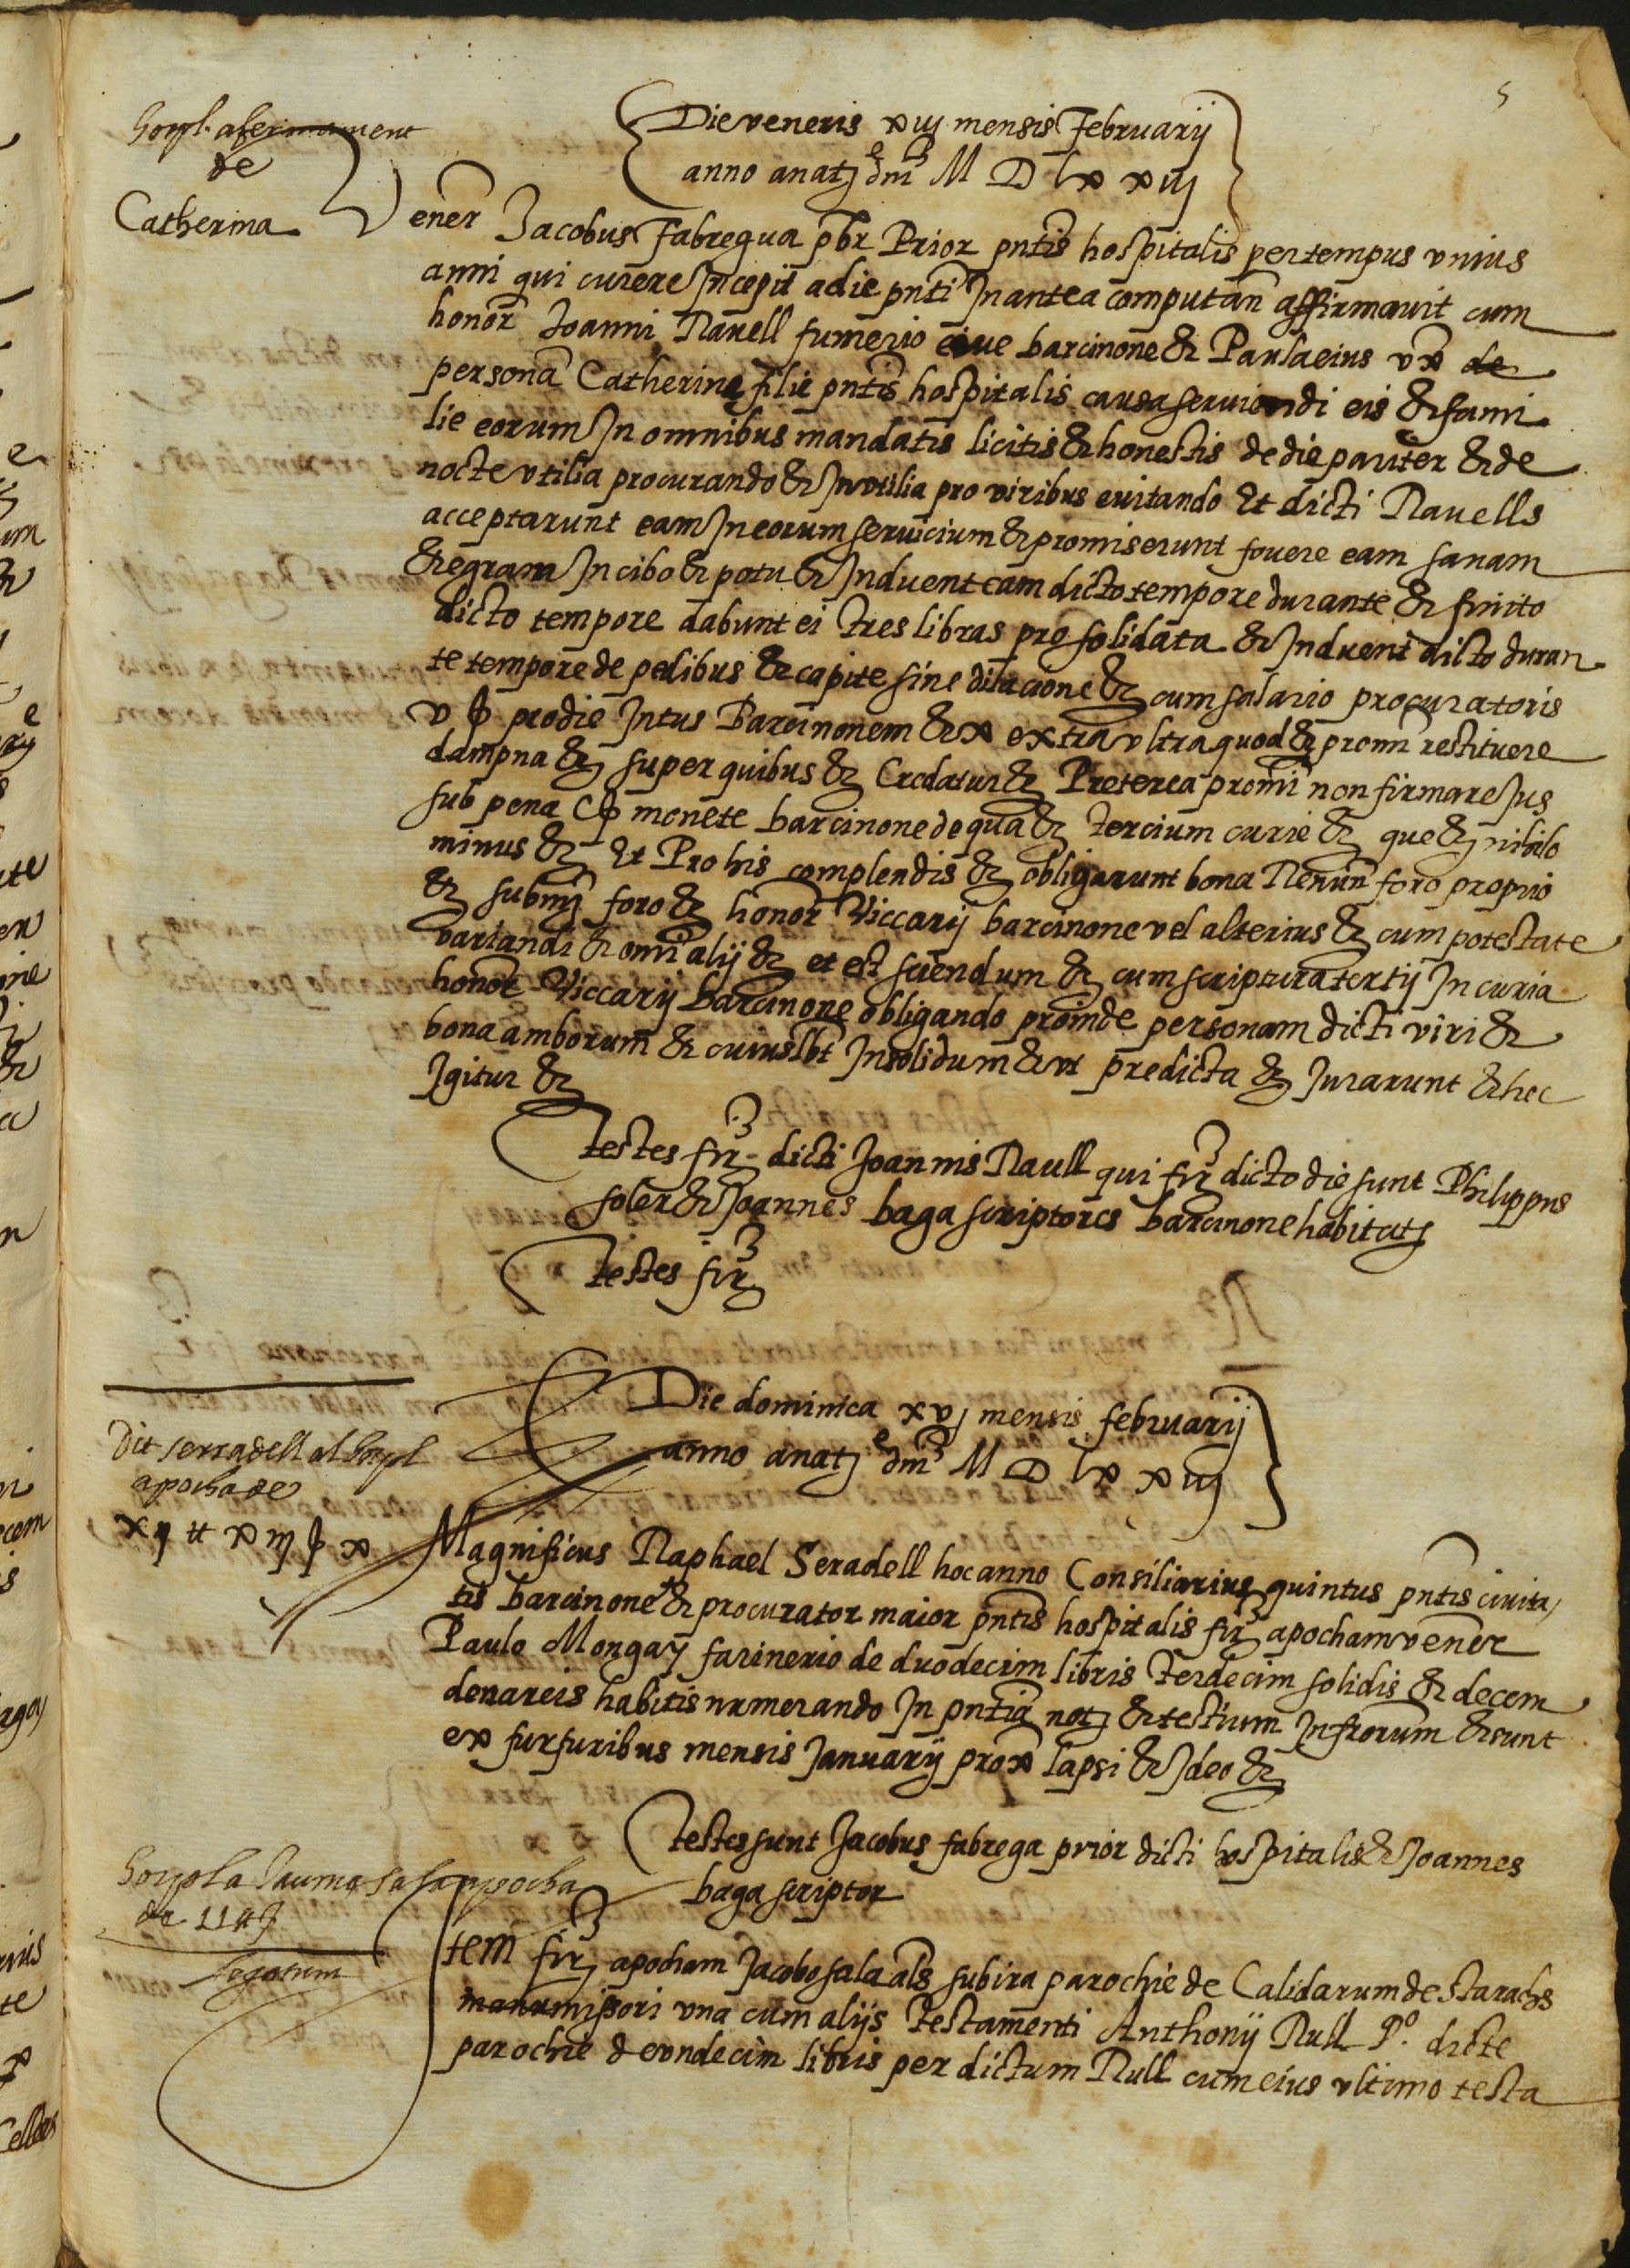 5
Die veneris xiij mensis Februarij
anno a natj dni M D Lxxiij
hospl. afermament
de
Catherina
Vener Jacobus Fabregua pbr Prior pntis hospitalis per tempus unius
anni qui currere Incepit a die pnti In antea computan affirmavit cum
honor Joanni Ravell fumerio cive barcinone & Paula eius ux de
persona Catherine filie pntis hospitalis causa serviendi eis & fami
lie eorum In omnibus mandatis licitis & honestis de die pariter & de
nocte utilia procurando & Inutilia pro viribus evitando Et dicti Ravells
acceptarunt eam In eorum servicium & promiserunt fovere eam sanam
& egram In cibo & potu & Induent eam dicto tempore durante & finito
dicto tempore dabunt ei tres libras pro solidata & Induent dicto duran
te tempore de pedibus & capite sine dilacione & cum salario procuratoris
v ß pro die Intus Barcinonem & x extra ultra quod & promi restituere
dampna & super quibus & Credatur & Preterea promi non firmare Jus
sub pena C ß monete barcinone de qua & tercium curie & que & nihilo
minus & Et Pro his complendis & obligarunt bona Renun foro proprio
& submi foro & honor Viccarij barcinone vel alterius & cum potestate
variandi & omi alij & et est sciendum & cum scriptura tertij In curia
honor Viccarij barcinone obligando proinde personam dicti viri &
bona amborum & cuiuslbt Insolidum & ut predicta & Jurarunt & hec
Igitur &
Testes fir dicti Joannis Raull qui fir dicto die sunt Philippus
soler & Joannes baga scriptores barcinone habitatj
Testes fir
Die dominica xvj mensis februarij
anno a natj dni M D Lxxiij
Dit serradell al hospl
apocha de
xij tt xiij ß x
Magnificus Raphael Seradell hoc anno Consiliarius quintus pntis civita
tis barcinone & procurator maior pntis hospitalis fir apocham vener
Paulo Mongay farinerio de duodecim libris Terdecim solidis & decem
denareis habitis numerando In pntia notj & testium Infrorum & sunt
ex furfuribus mensis Januarij prox lapsi & Ideo &
Testes sunt Jacobus fabrega prior dicti hospitalis & Joannes
baga scriptor
hospl a Jaume sala appocha
de 11 tt
legatum
Item fir apocham Jacobo sala als subira parochie de Calidarum de starachs
manumissori una cum alijs Testamenti Anthonij Rull Pº. dicte
parochie de undecim libris per dictum Rull cum eius ultimo testa